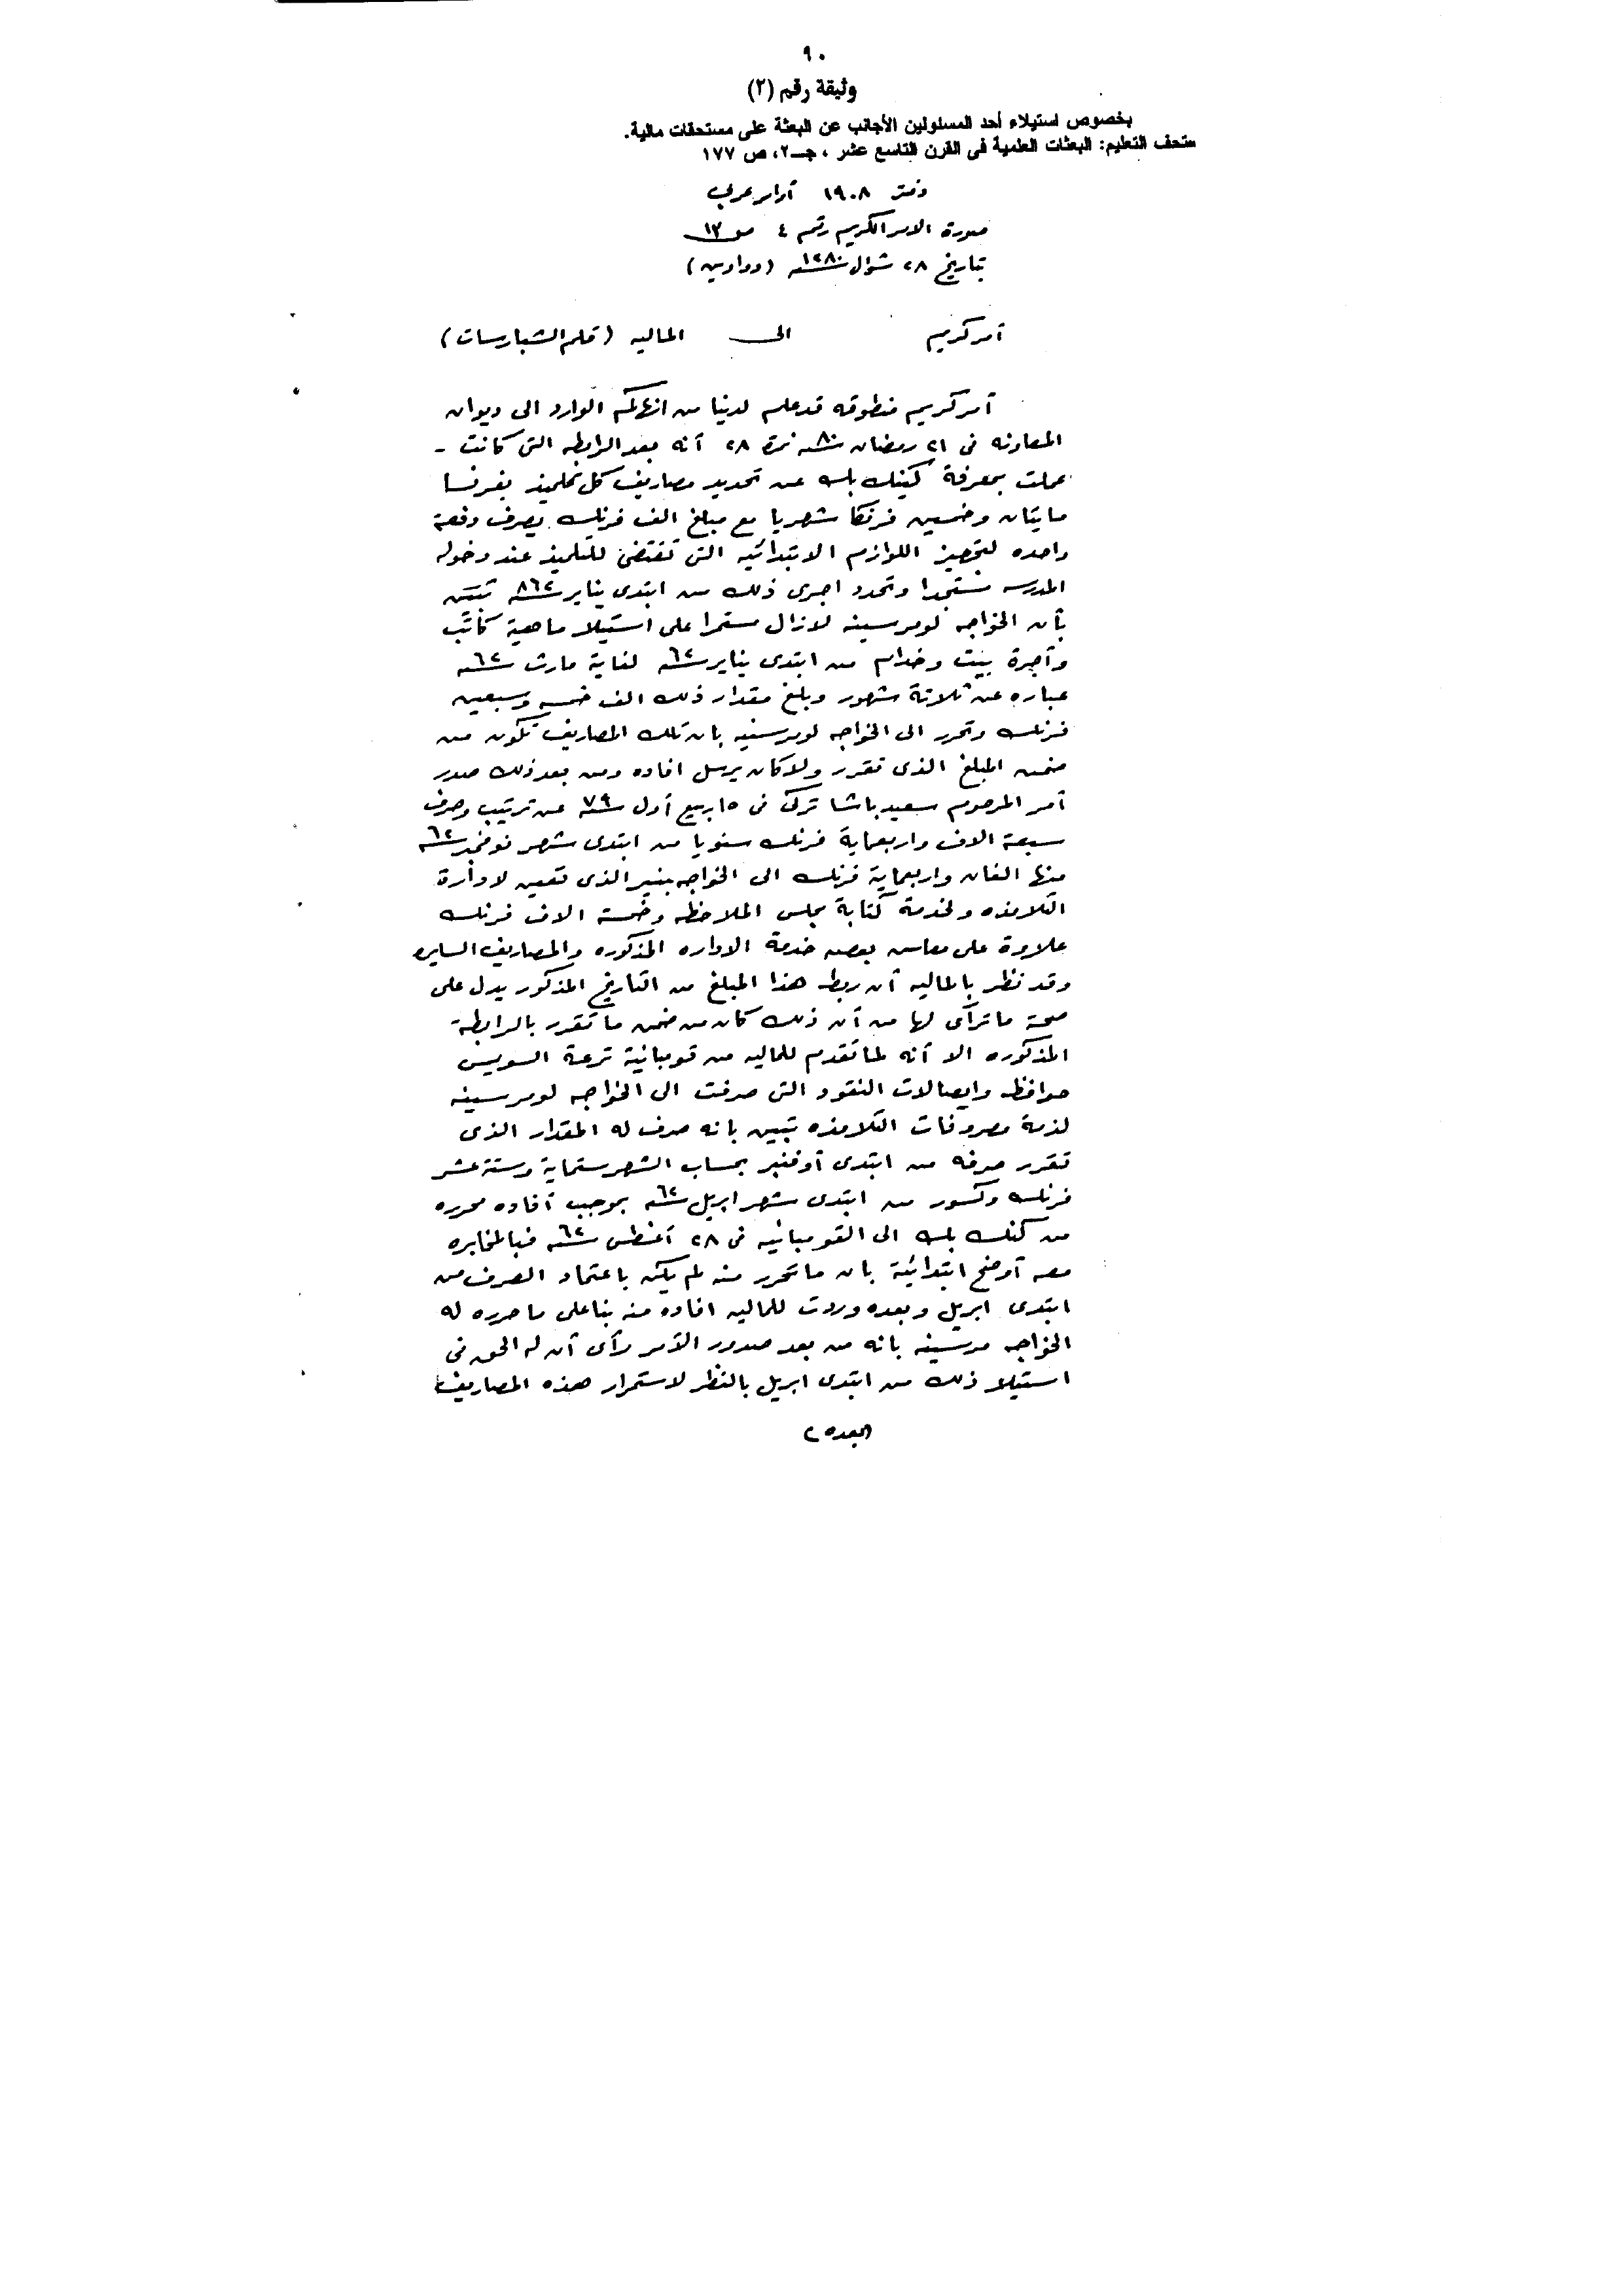 ٩٠
وثيقة رقم (٢)
بخصوص استيلاء أحد المسئولين الأجانب عن البعثة على مستحقات مالية.
متحف التعليم: البعثات العلمية فى القرن التاسع عشر ، جـ٢، ص ١٧٧
دفتر ١٩٠٨ أوامر عربي
صورة الامر الكريم رقم ٤ ص ١٣
بتاريخ ٢٨ شوال سنة ١٢٨٠ (دواوين)
أمر كريم الى المالية (قلم الشبارسات)
أمر كريم منطوقه قد علم لدينا من انهائكم الوارد الى ديوان
المعاونه فى ٢١ رمضان سنة ٨٠ نمرة ٢٨ أنه بعد الرابطه التى كانت -
عملت بمعرفة كينك بك عن تحديد مصاريف كل تلميذ بفرنسا
مايتان وخمسين فرنكا شهريا مع مبلغ الف فرنك يصرف دفعة
واحده لتجهيز اللوازم الابتدائيه التى تقتضى للتلميذ عند دخوله
المدرسه مستجدا وتحدد اجرى ذلك من ابتدى يناير سنة ٨٦٢ تبين
بأن الخواجه لومرسينه لازال مستمرا على استيلا ماهية كاتب
وأجرة بيت وخدام من ابتدى يناير سنة ٦٢ لغاية مارث سنة ٦٢
عباره عن ثلاثة شهور وبلغ مقدار ذلك الف خمسه وسبعين
فرنك وتحرر الى الخواجه لومرسينه بان تلك المصاريف تكون من
ضمن المبلغ الذى تقرر ولا كان يرسل افاده ومن بعد ذلك صدر
أمر المرحوم سعيد باشا تركى فى ١٥ ربيع أول سنة ٧٩ عن ترتيب وصرف
سبعة الاف واربعماية فرنك سنويا من ابتدى شهر نوفمبر سنة ٦٢
منها الفان واربعماية فرنك الى الخواجه بنير الذى تعين لادارة
التلامذه ولخدمة كتابة مجلس الملاحظه وخمسة الاف فرنك
علاوة على معاش بعض خدمة الاداره المذكوره والمصاريف السايره
وقد نظر بالماليه أن ربط هذا المبلغ من التاريخ المذكور يدل على
صحة ما ترآى لها من أن ذلك كان من ضمن ما تقرر بالرابطة
المذكوره الا أنه لما تقدم للماليه من قومبانية ترعة السويس
حوافظ وايصالات النقود التى صرفت الى الخواجه لومرسينه
لذمة مصروفات التلامذه تبين بانه صرف له المقدار الذى
تقرر صرفه من ابتدى نوفمبر بحساب الشهر ستماية وستة عشر
فرنك وكسور من ابتدى شهر ابريل سنة ٦٢ بموجب أفاده محرره
من كنك بك الى القومبانيه فى ٢٨ أغسطس سنة ٦٢ فبالمخابره
معه أوضح ابتدائية بان ما تحرر منه لم يكن باعتماد الصرف من
ابتدى ابريل وبعده وردت للماليه افاده منه بنا على ما حرره له
الخواجه مرسينه بانه من بعد صدور الأمر رأى أن له الحق فى
استيلا ذلك من ابتدى ابريل بالنظر لاستمرار هذه المصاريف
(بعده)